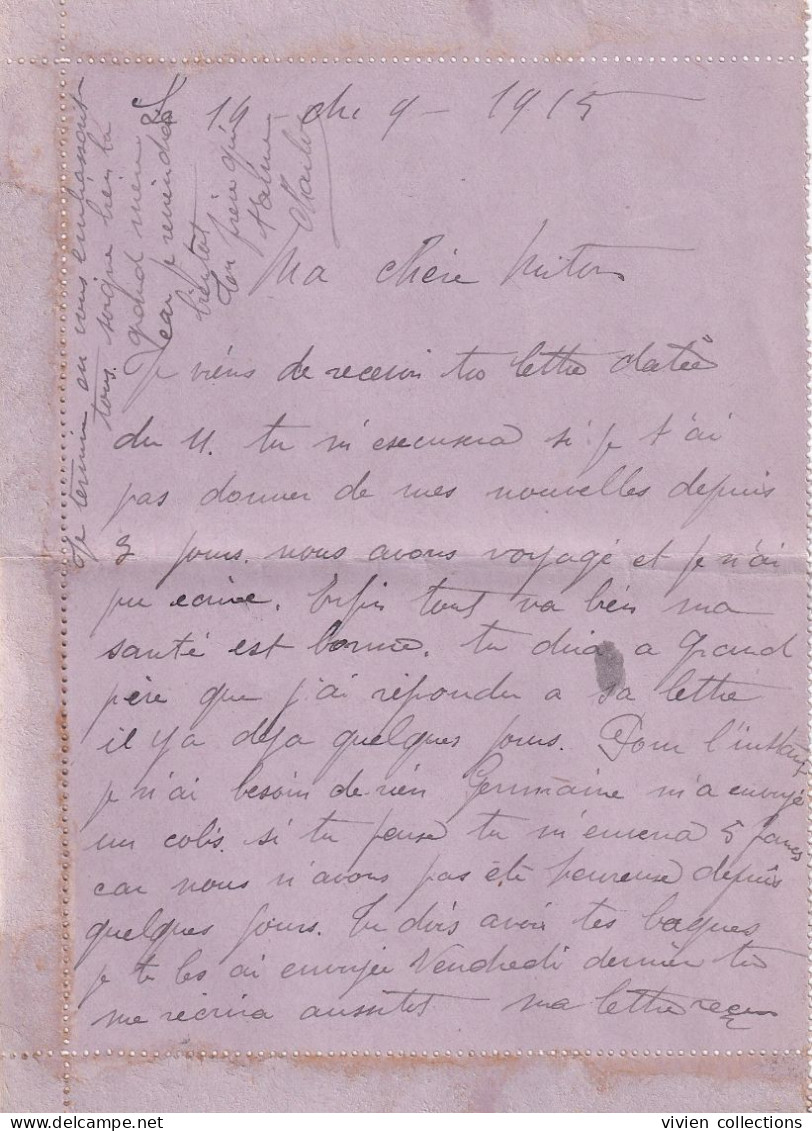 19 - 9 - 1915
Ma chère
Je viens de recevoir ta lettre datée
du 11. tu m'excusera si je t'ai
pas donner de mes nouvelles depuis
3 jours. nous avons voyagé et je n'ai
pu ecrire. Enfin tout va bien ma
santé est bonne. tu dira a grand
père que j'ai répondu a sa lettre
il y a deja quelques jours. Pour l'instant
je n'ai besoin de rien Germaine m'a envoyé
un colis. si tu peux tu m'enverra 5 francs
car nous n'avons pas été heureuse depuis
quelques jours. Tu dois avoir tes bagues
je te les ai envoyée Vendredi dernier tu
me recrira aussitot ma lettre recu
Je termine en vous embrassant
tous. soigne bien ta
grand mère
car je reviendrai
bientot
ton frère qui
t'aime
Charles
vivien collections